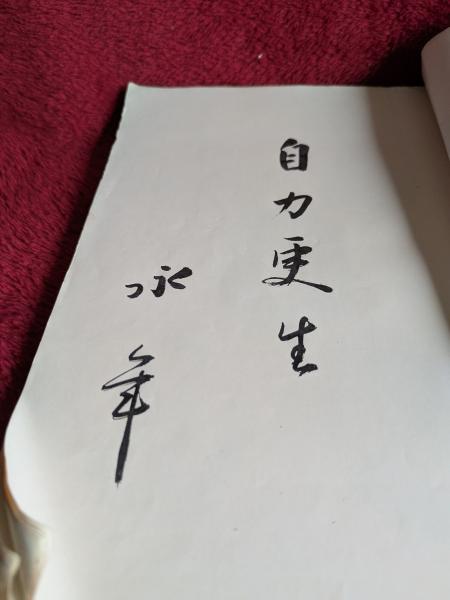 自力更生
永年